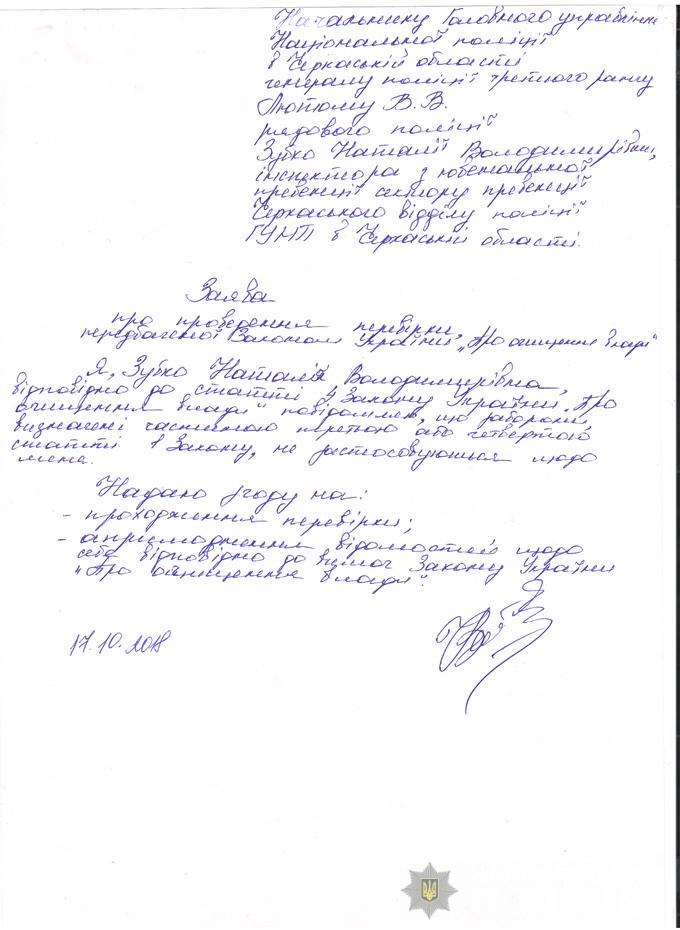 Начальнику Головного управління
Національної поліції
в Черкаській області
генералу поліції третього рангу
Лютому В.В.
рядового поліції
Зубко Наталії Володимирівни,
інспектора з ювенальної
превенції сектору превенції
Черкаського відділу поліції
ГУНП в Черкаській області.
Заява
про проведення перевірки,
передбаченої Законом України „Про очищення влади"
Я, Зубко Наталія Володимирівна,
відповідно до статті 4 Закону України „Про
очищення влади" повідомляю, що заборони,
визначені частиною третьою або четвертою
статті 1 Закону, не застосовуються щодо
мене.
Надаю згоду на:
- проходження перевірки;
- оприлюднення відомостей щодо
себе відповідно до вимог Закону України
„Про очищення влади".
17.10.2018